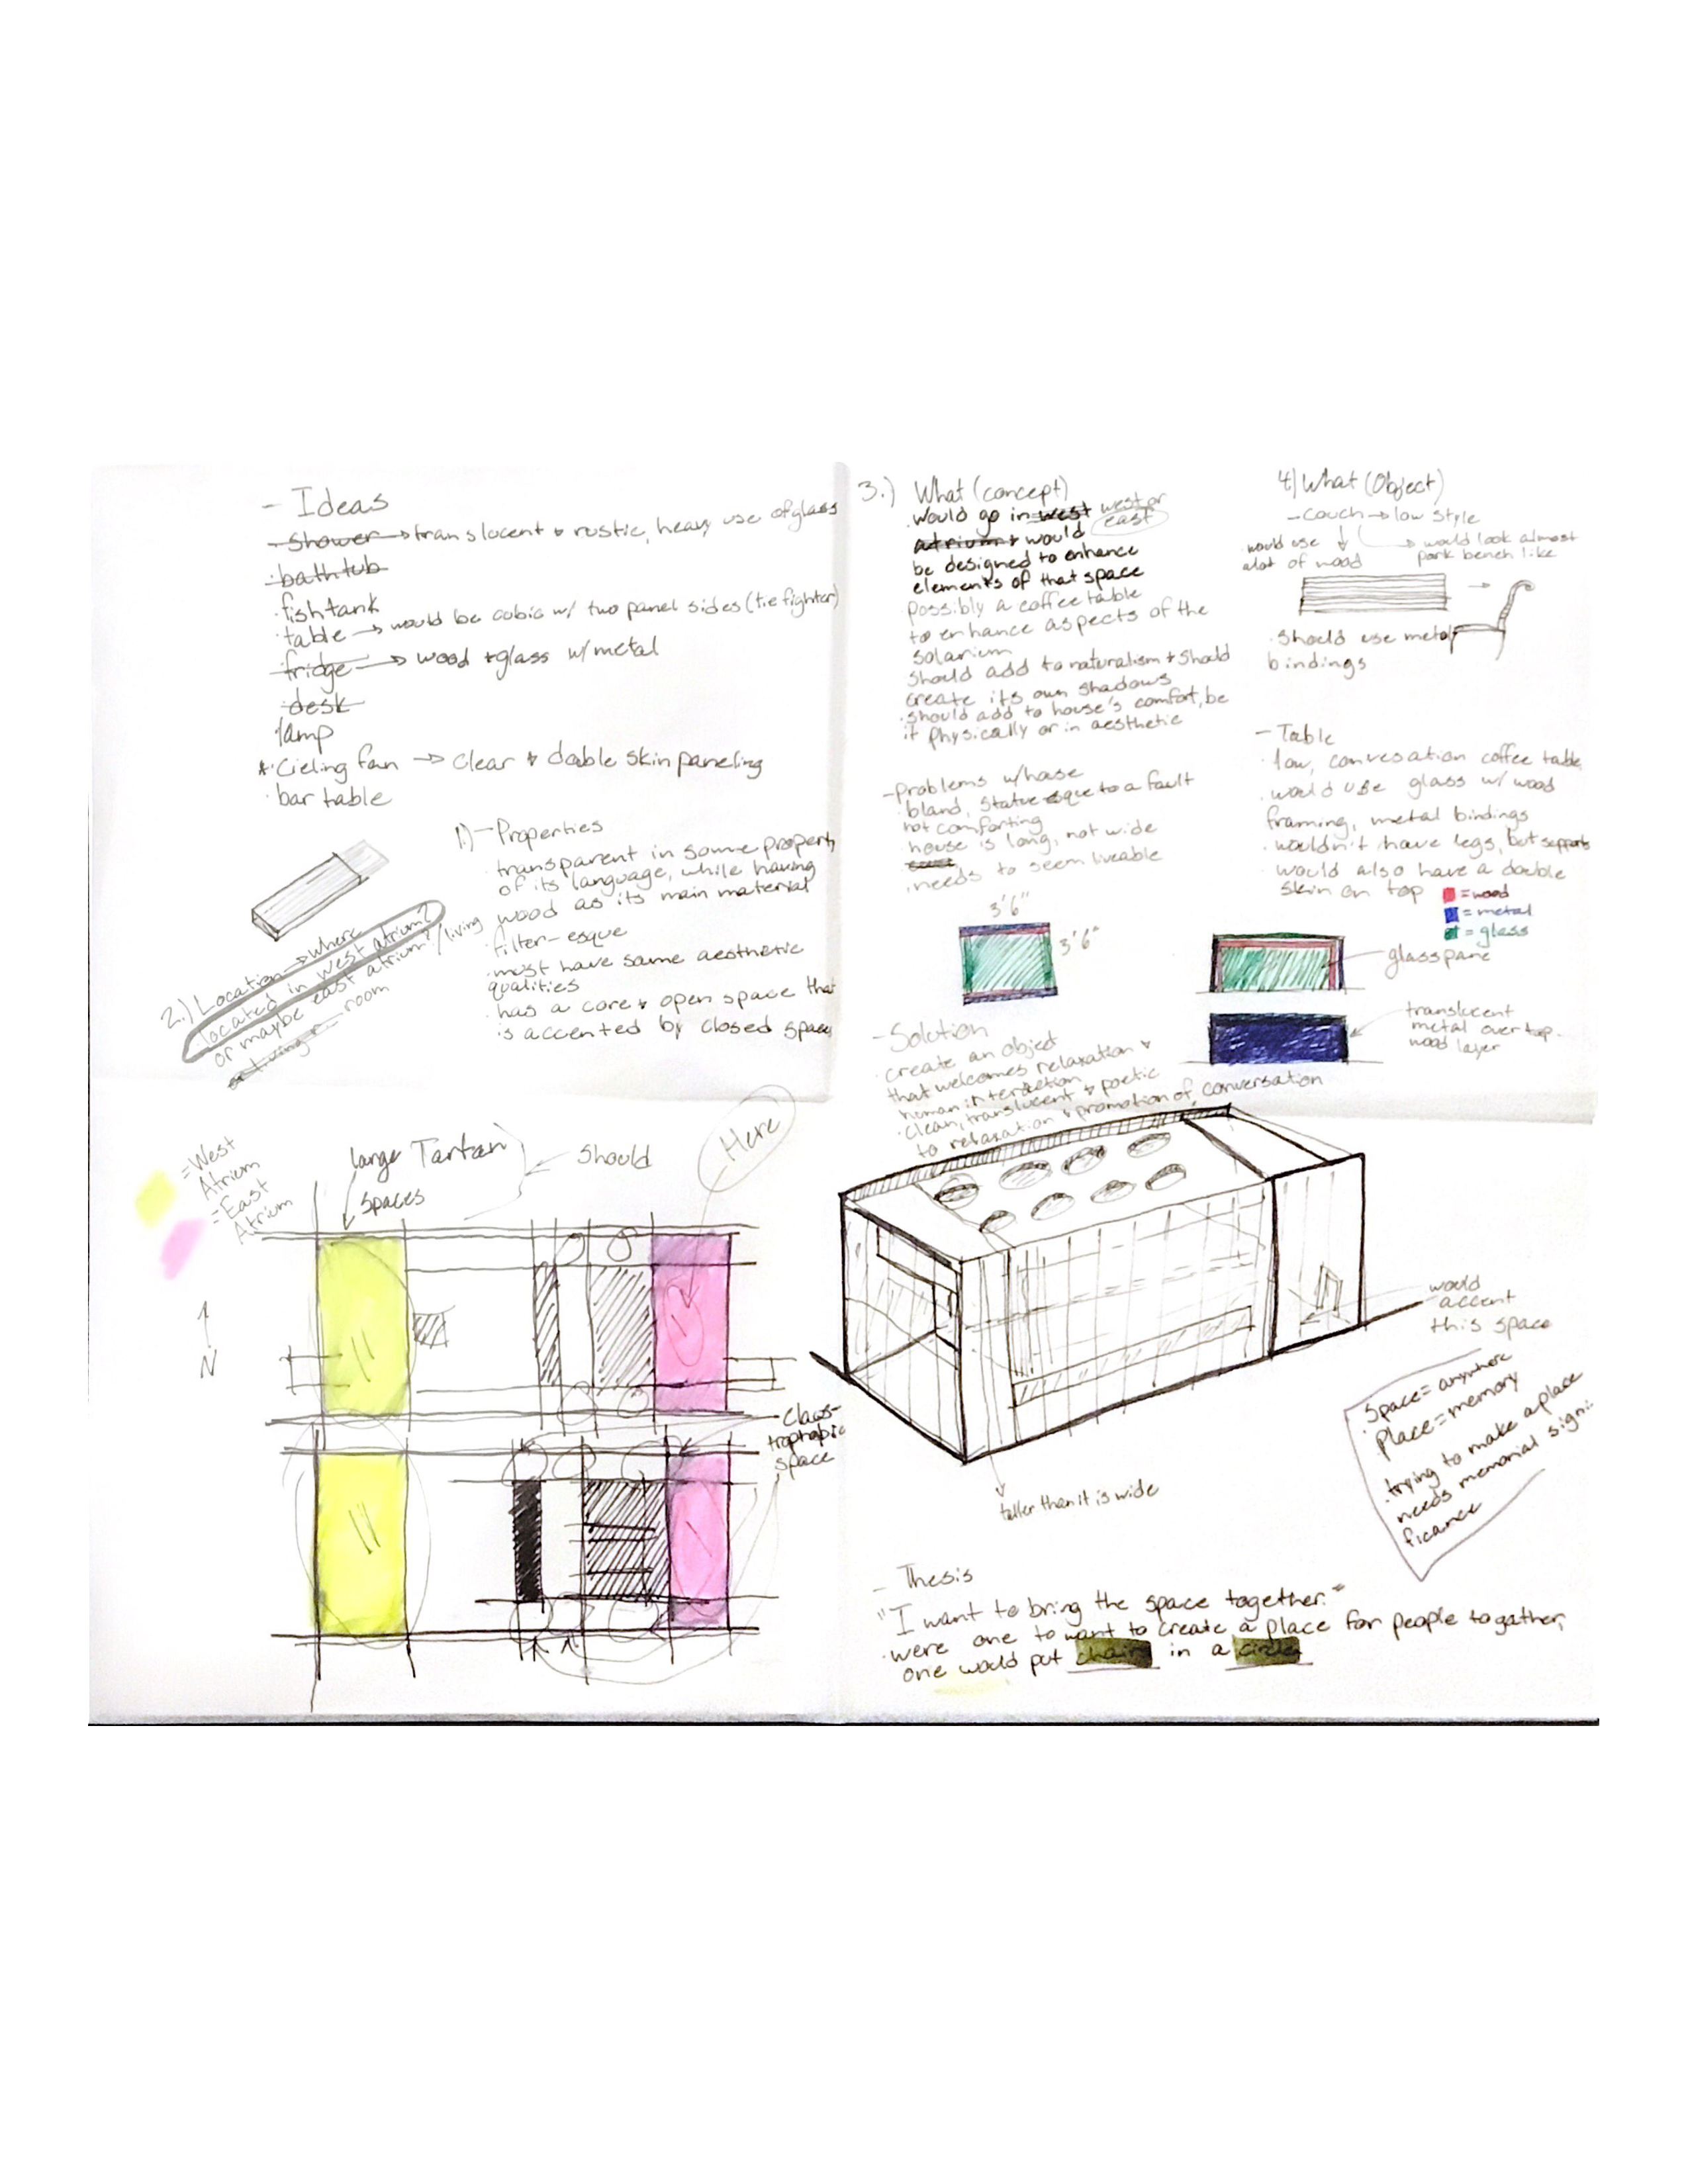 - Ideas
· Shower → translucent + rustic, heavy use of glass
· bathtub
· fish tank
· table → would be cubic w/ two panel sides (tie fighter)
· fridge → wood + glass w/ metal
· desk
lamp
* · Cieling fan → clear + double skin paneling
· bar table
1.) - Properties
· transparent in some property
of its language, while having
wood as its main material
· filter-esque
· must have same aesthetic
qualities
· has a core + open space that
is accented by closed space
2.) Location → where
· located in west atrium?
or maybe east atrium? / living
room
3.) What (concept)
· Would go in west west or
east
atrium + would
be designed to enhance
elements of that space
· possibly a coffee table
to enhance aspects of the
solarium
· should add to naturalism + should
create its own shadows
· should add to house's comfort, be
it physically or in aesthetic
- Problems w/ house
· bland, statue esque to a fault
· not comforting
· house is long, not wide
· needs to seem liveable
3'6"
3'6"
- Solution
· create an object
that welcomes relaxation +
human interaction
· clean, translucent + poetic
to relaxation + promotion of conversation
4) What (Object)
- couch → low style
· would use
alot of wood
→ would look almost
park bench like
· should use metal
bindings
- Table
· low, convesation coffee table
· would use glass w/ wood
framing, metal bindings
· wouldn't have legs, but supports
· would also have a double
skin on top
= wood
= metal
= glass
glass pane
translucent
metal over top
wood layer
= West
Atrium
= East
Atrium
large Tartan
spaces
Should
Here
N
Claus-
trophobic
space
would
accent
this space
taller than it is wide
· Space = anywhere
· place = memory
· trying to make a place
needs memorial signi-
ficance
- Thesis
"I want to bring the space together."
· were one to want to create a place for people to gather,
one would put chairs in a circle